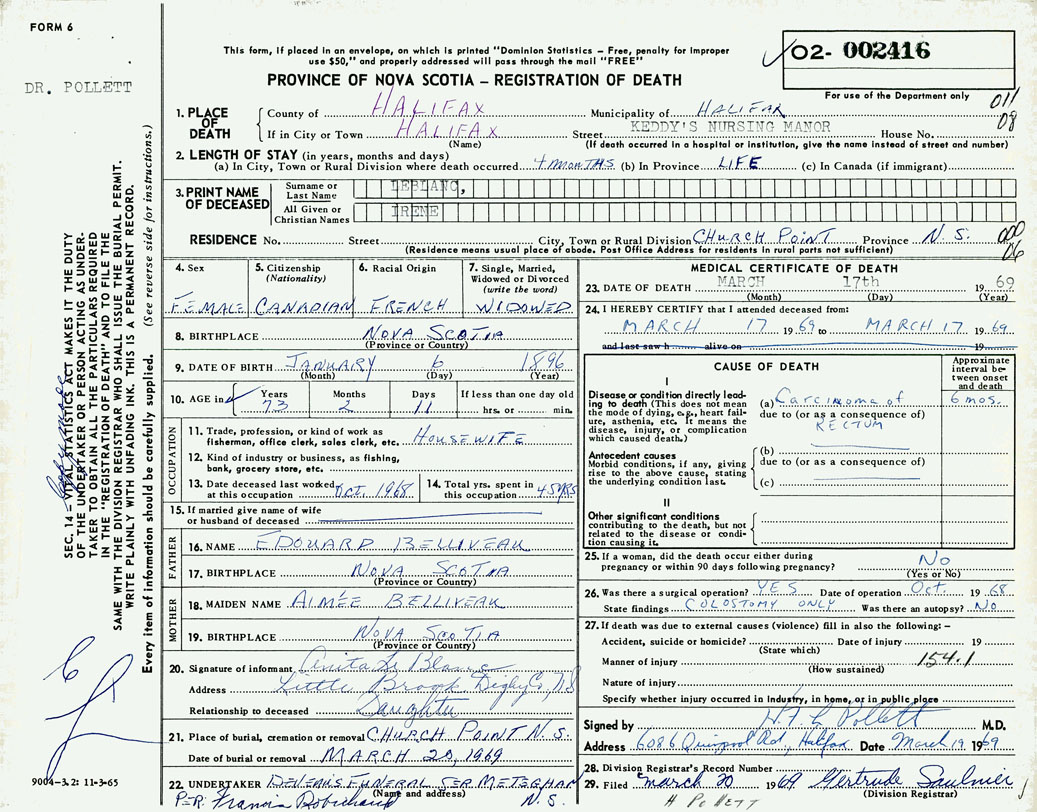 FORM 6
DR. POLLETT
This form, if placed in an envelope, on which is printed "Dominion Statistics – Free, penalty for improper
use $50," and properly addressed will pass through the mail "FREE"
PROVINCE OF NOVA SCOTIA – REGISTRATION OF DEATH
02- 002416
For use of the Department only
011
08
1. PLACE OF DEATH
County of HALIFAX Municipality of HALIFAX
If in City or Town HALIFAX Street KEDDY'S NURSING MANOR House No.
(Name) (If death occurred in a hospital or institution, give the name instead of street and number)
2. LENGTH OF STAY (in years, months and days)
(a) In City, Town or Rural Division where death occurred 4 MONTHS (b) In Province LIFE (c) In Canada (if immigrant)
3. PRINT NAME OF DECEASED
Surname or Last Name LEBLANC,
All Given or Christian Names IRENE
RESIDENCE No. Street City, Town or Rural Division CHURCH POINT Province N.S.
000
06
(Residence means usual place of abode. Post Office Address for residents in rural parts not sufficient)
4. Sex FEMALE
5. Citizenship (Nationality) CANADIAN
6. Racial Origin FRENCH
7. Single, Married, Widowed or Divorced (write the word) WIDOWED
8. BIRTHPLACE NOVA SCOTIA
(Province or Country)
9. DATE OF BIRTH JANUARY 6 1896
(Month) (Day) (Year)
10. AGE in Years Months Days If less than one day old
73 2 11 hrs. or min.
OCCUPATION
11. Trade, profession, or kind of work as
fisherman, office clerk, sales clerk, etc. HOUSEWIFE
12. Kind of industry or business, as fishing,
bank, grocery store, etc.
13. Date deceased last worked at this occupation Oct. 1968
14. Total yrs. spent in this occupation 45 YRS
15. If married give name of wife
or husband of deceased
FATHER
16. NAME EDOUARD BELLIVEAU
17. BIRTHPLACE NOVA SCOTIA
(Province or Country)
MOTHER
18. MAIDEN NAME AIMÉE BELLIVEAU
19. BIRTHPLACE NOVA SCOTIA
(Province or Country)
20. Signature of informant Anita Le Blanc
Address Little Brook Digby Co, N.S
Relationship to deceased Daughter
21. Place of burial, cremation or removal CHURCH POINT N.S.
Date of burial or removal MARCH 20, 1969
22. UNDERTAKER FUNERAL SER METEGHAN
(Name and address)
PER. Francis Robichaud N.S.
MEDICAL CERTIFICATE OF DEATH
23. DATE OF DEATH MARCH 17th 1969
(Month) (Day) (Year)
24. I HEREBY CERTIFY that I attended deceased from:
MARCH 17 1969 to MARCH 17 1969
and last saw h alive on 19
CAUSE OF DEATH
Approximate interval between onset and death
I
Disease or condition directly leading
to death (This does not mean
the mode of dying, e.g., heart failure,
asthenia, etc. It means the
disease, injury, or complication
which caused death.)
(a) Carcinoma of 6 mos.
due to (or as a consequence of)
RECTUM
Antecedent causes
Morbid conditions, if any, giving
rise to the above cause, stating
the underlying condition last.
(b)
due to (or as a consequence of)
(c)
II
Other significant conditions
contributing to the death, but not
related to the disease or condition
causing it.
25. If a woman, did the death occur either during
pregnancy or within 90 days following pregnancy? No
(Yes or No)
26. Was there a surgical operation? YES Date of operation Oct. 1968
State findings COLOSTOMY ONLY Was there an autopsy? No
27. If death was due to external causes (violence) fill in also the following: –
Accident, suicide or homicide? Date of injury 19
(State which)
Manner of injury 154.1
(How sustained)
Nature of injury
Specify whether injury occurred in industry, in home, or in public place
Signed by H. F. C. Pollett M.D.
Address 6086 Quinpool Rd, Halifax Date March 19 1969
28. Division Registrar's Record Number
29. Filed March 20 1969 Gertrude Saulnier
(Division Registrar)
H POLLETT
SEC. 14 – VITAL STATISTICS ACT MAKES IT THE DUTY
OF THE UNDERTAKER OR PERSON ACTING AS UNDERTAKER
TO OBTAIN ALL THE PARTICULARS REQUIRED
IN THE "REGISTRATION OF DEATH" AND TO FILE THE
SAME WITH THE DIVISION REGISTRAR WHO SHALL ISSUE THE BURIAL PERMIT.
WRITE PLAINLY WITH UNFADING INK. THIS IS A PERMANENT RECORD.
Every item of information should be carefully supplied. (See reverse side for instructions.)
9004–3.2: 11-3-65